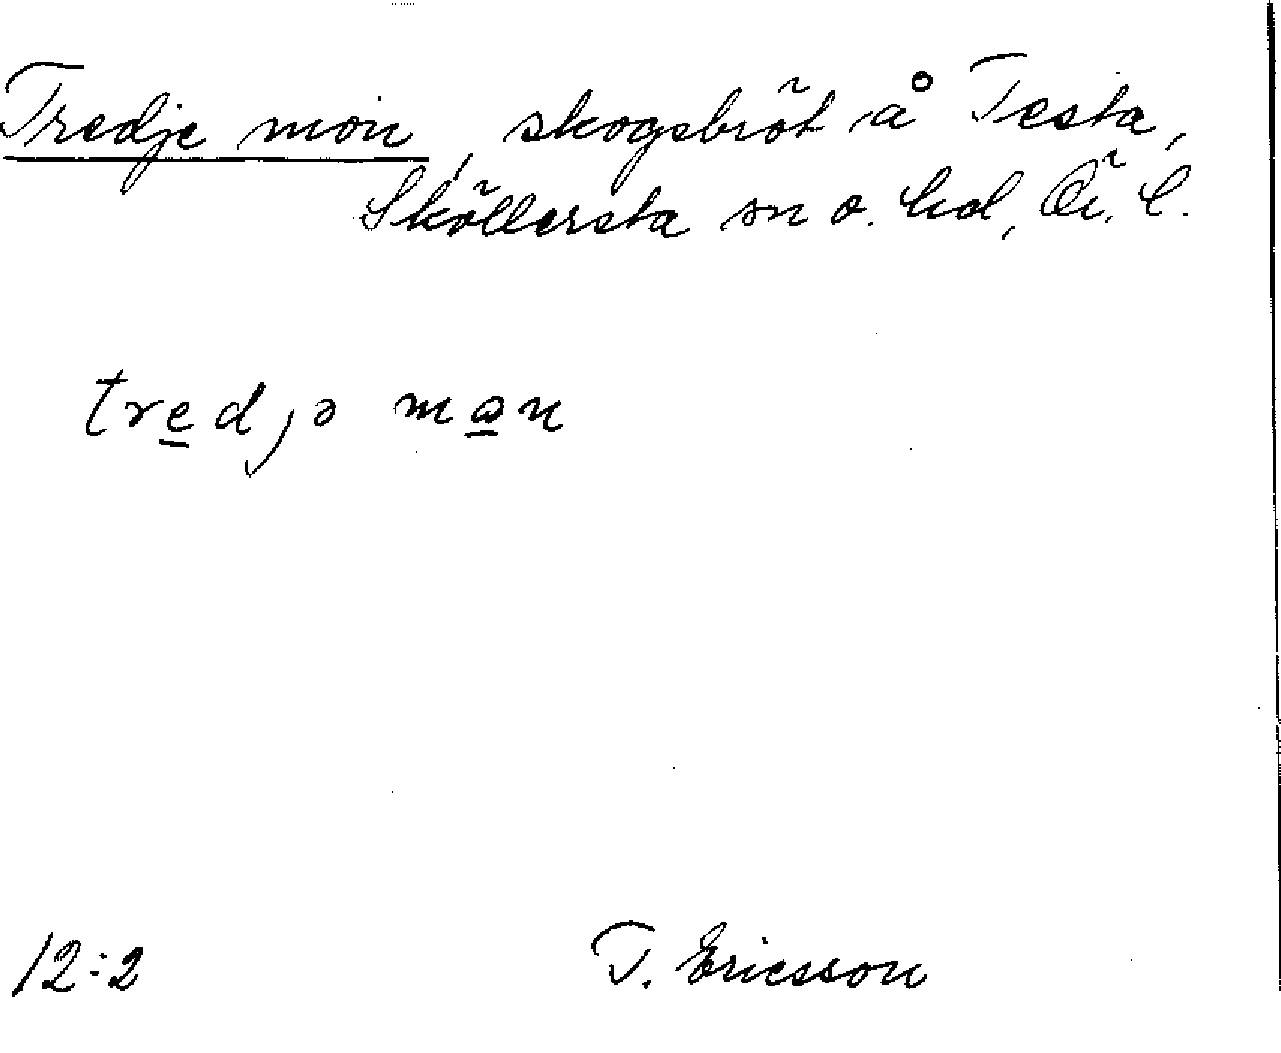 Tredje mon, skogsbröt å Testa,
Sköllersta sn o. hd, Ör. l.
tredjə man
12:2
T. Ericsson